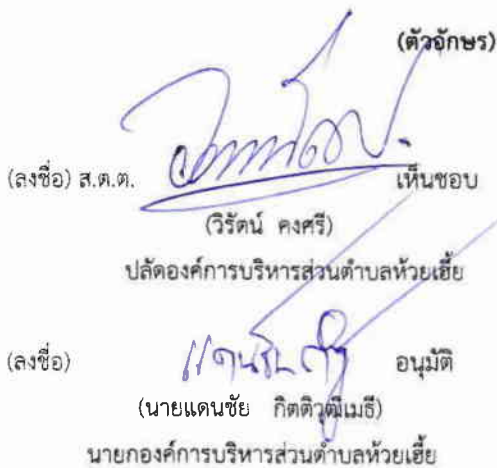 (ตัวอักษร)
(ลงชื่อ) ส.ต.ต. เห็นชอบ
(วิรัตน์ คงศรี)
ปลัดองค์การบริหารส่วนตำบลห้วยเฮี้ย
(ลงชื่อ) แดนชัย อนุมัติ
(นายแดนชัย กิตติวุฒิเมธี)
นายกองค์การบริหารส่วนตำบลห้วยเฮี้ย